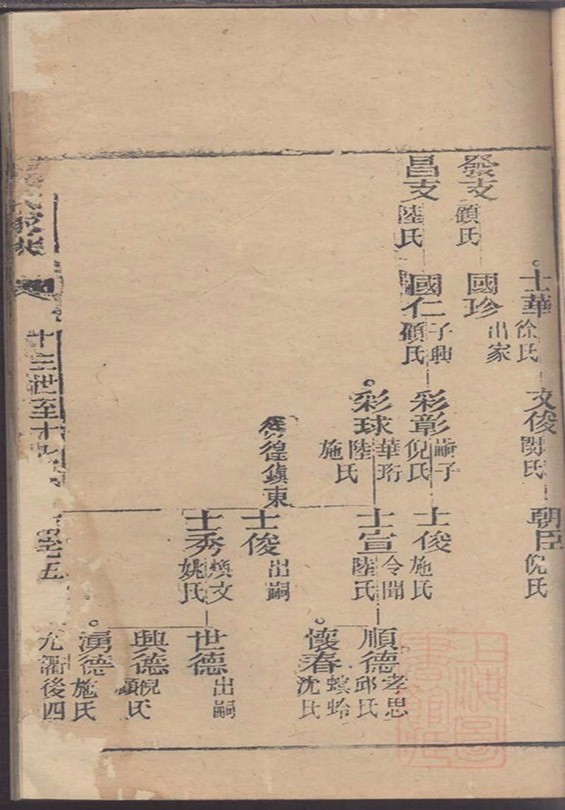 士華 徐氏
文俊 閔氏
朝臣 倪氏
發支 顧氏
國珍 出家
昌支 陸氏
國仁 子興 顧氏
彩彰 繭子 倪氏
士俊 施氏
順德 孝思 邱氏
彩球 華珩 陸氏 施氏
士宣 令聞 陸氏
懷春 螟蛉 沈氏
徨鎮東
士俊 出嗣
士秀 煥文 姚氏
世德 出嗣
興德 倪氏 顧氏
湧德 施氏
後四
十三世至十